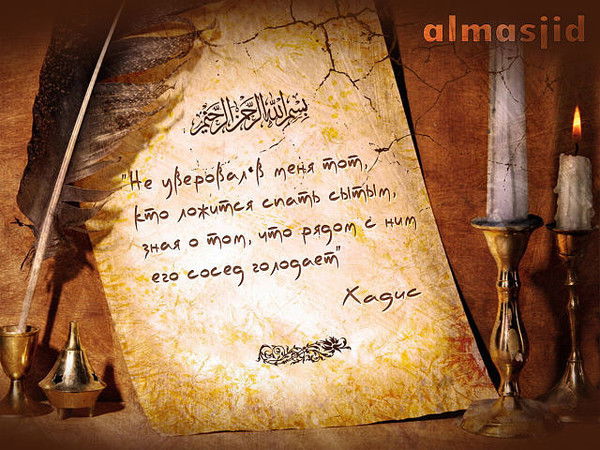 almasjid
بسم الله الرحمن الرحيم
"Не уверовал в меня тот,
кто ложится спать сытым,
зная о том, что рядом с ним
его сосед голодает"
Хадис